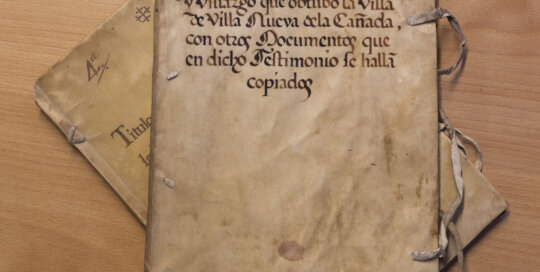 que obtubo la Villa
de Villa Nueva dela Cañada,
con otros Documentos que
en dicho Testimonio se hallã
copiados
Titulo